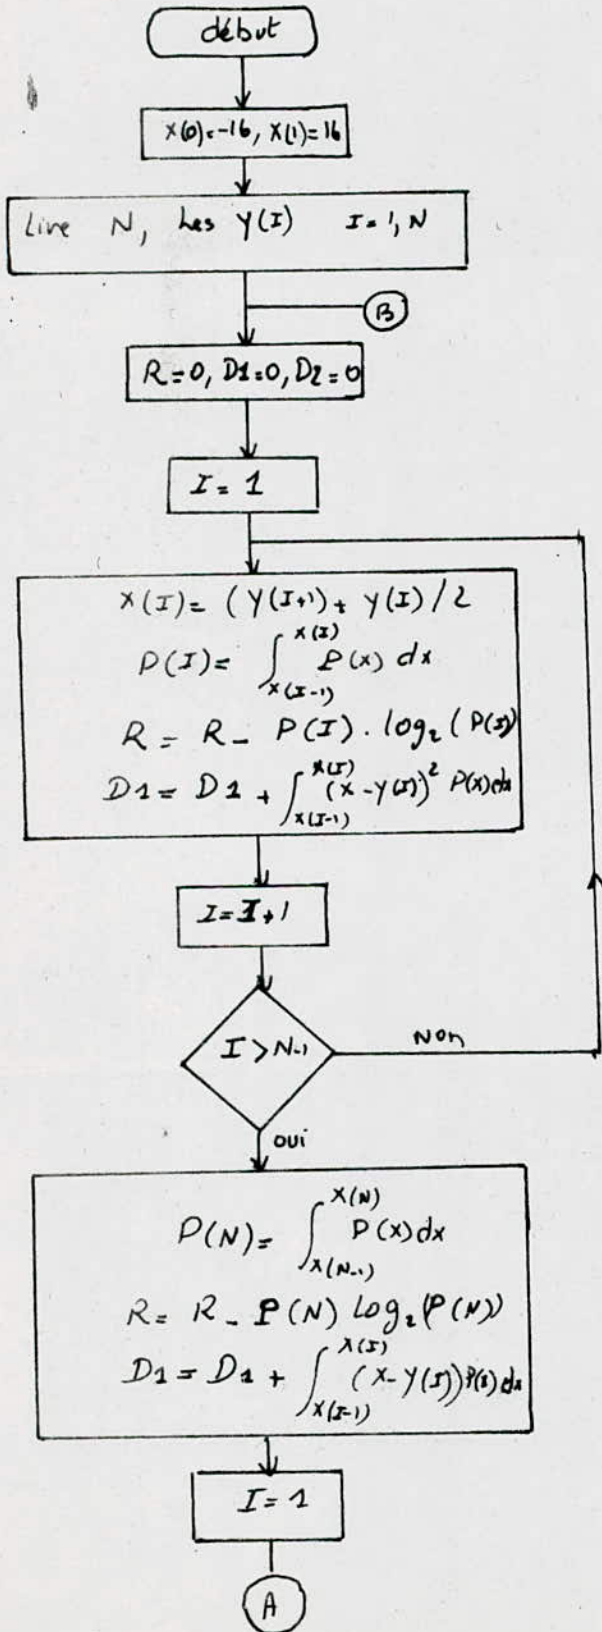 début
X(0)=-16, X(1)=16
Lire N, Les Y(I) I=1,N
B
R=0, D1=0, D2=0
I=1
X(I)=(Y(I+1)+Y(I)/2
P(I)= ∫_{X(I-1)}^{X(I)} P(x) dx
R=R-P(I).log₂(P(I)
D1=D1+∫_{X(I-1)}^{X(I)} (x-Y(I))² P(x)dx
I=I+1
I>N-1
Non
oui
P(N)= ∫_{X(N-1)}^{X(N)} P(x)dx
R=R-P(N) Log₂(P(N))
D1=D1+∫_{X(I-1)}^{X(I)} (x-Y(I))P(x)dx
I=1
A